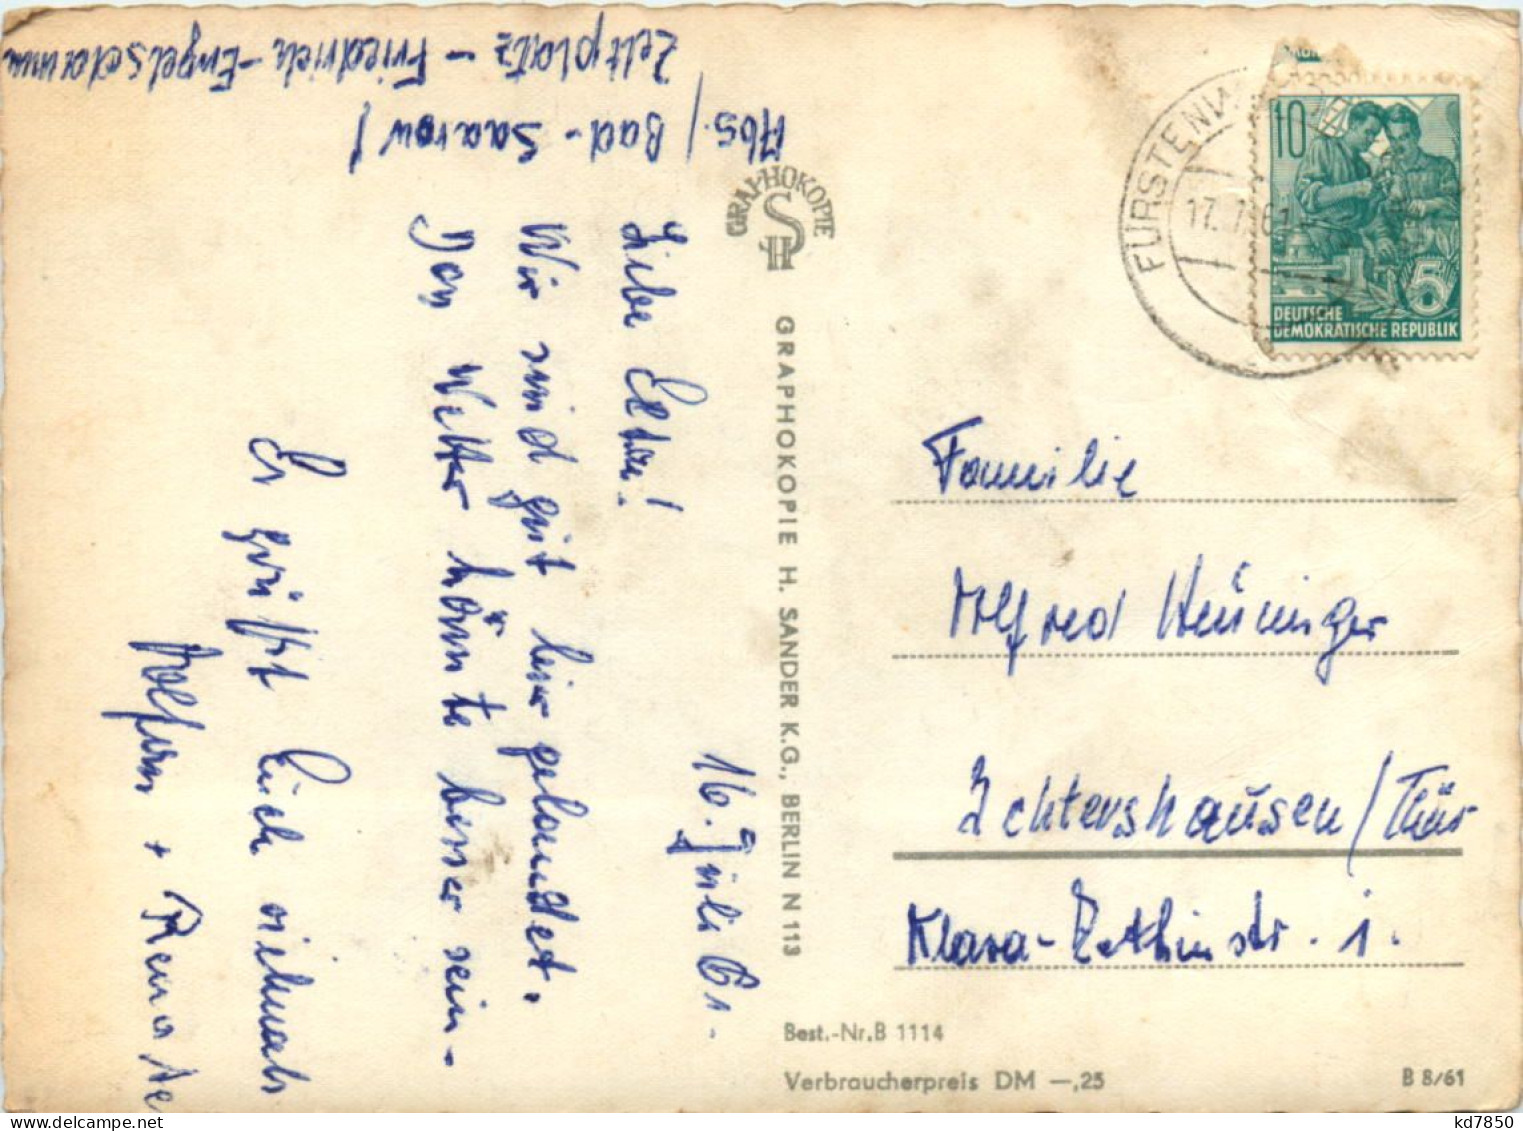 Abs./ Bad-Saarow /
Zeltplatz - Friedrich-Engelsdamm
16. Juli 61.
Liebe Eltern!
Wir sind gut hier gelandet.
Das Wetter könnte besser sein.
Es grüßt Euch vielmals
Wolfram + Renate
GRAPHOKOPIE
H S
GRAPHOKOPIE H. SANDER K.G., BERLIN N 113
FÜRSTENW
17.7.61
10
5
DEUTSCHE
DEMOKRATISCHE REPUBLIK
Familie
Alfred Heüninger
Ichtershausen/Thür
Klara-Zetkinstr. 1.
Best.-Nr. B 1114
Verbraucherpreis DM —,25
B 8/61
kd7850